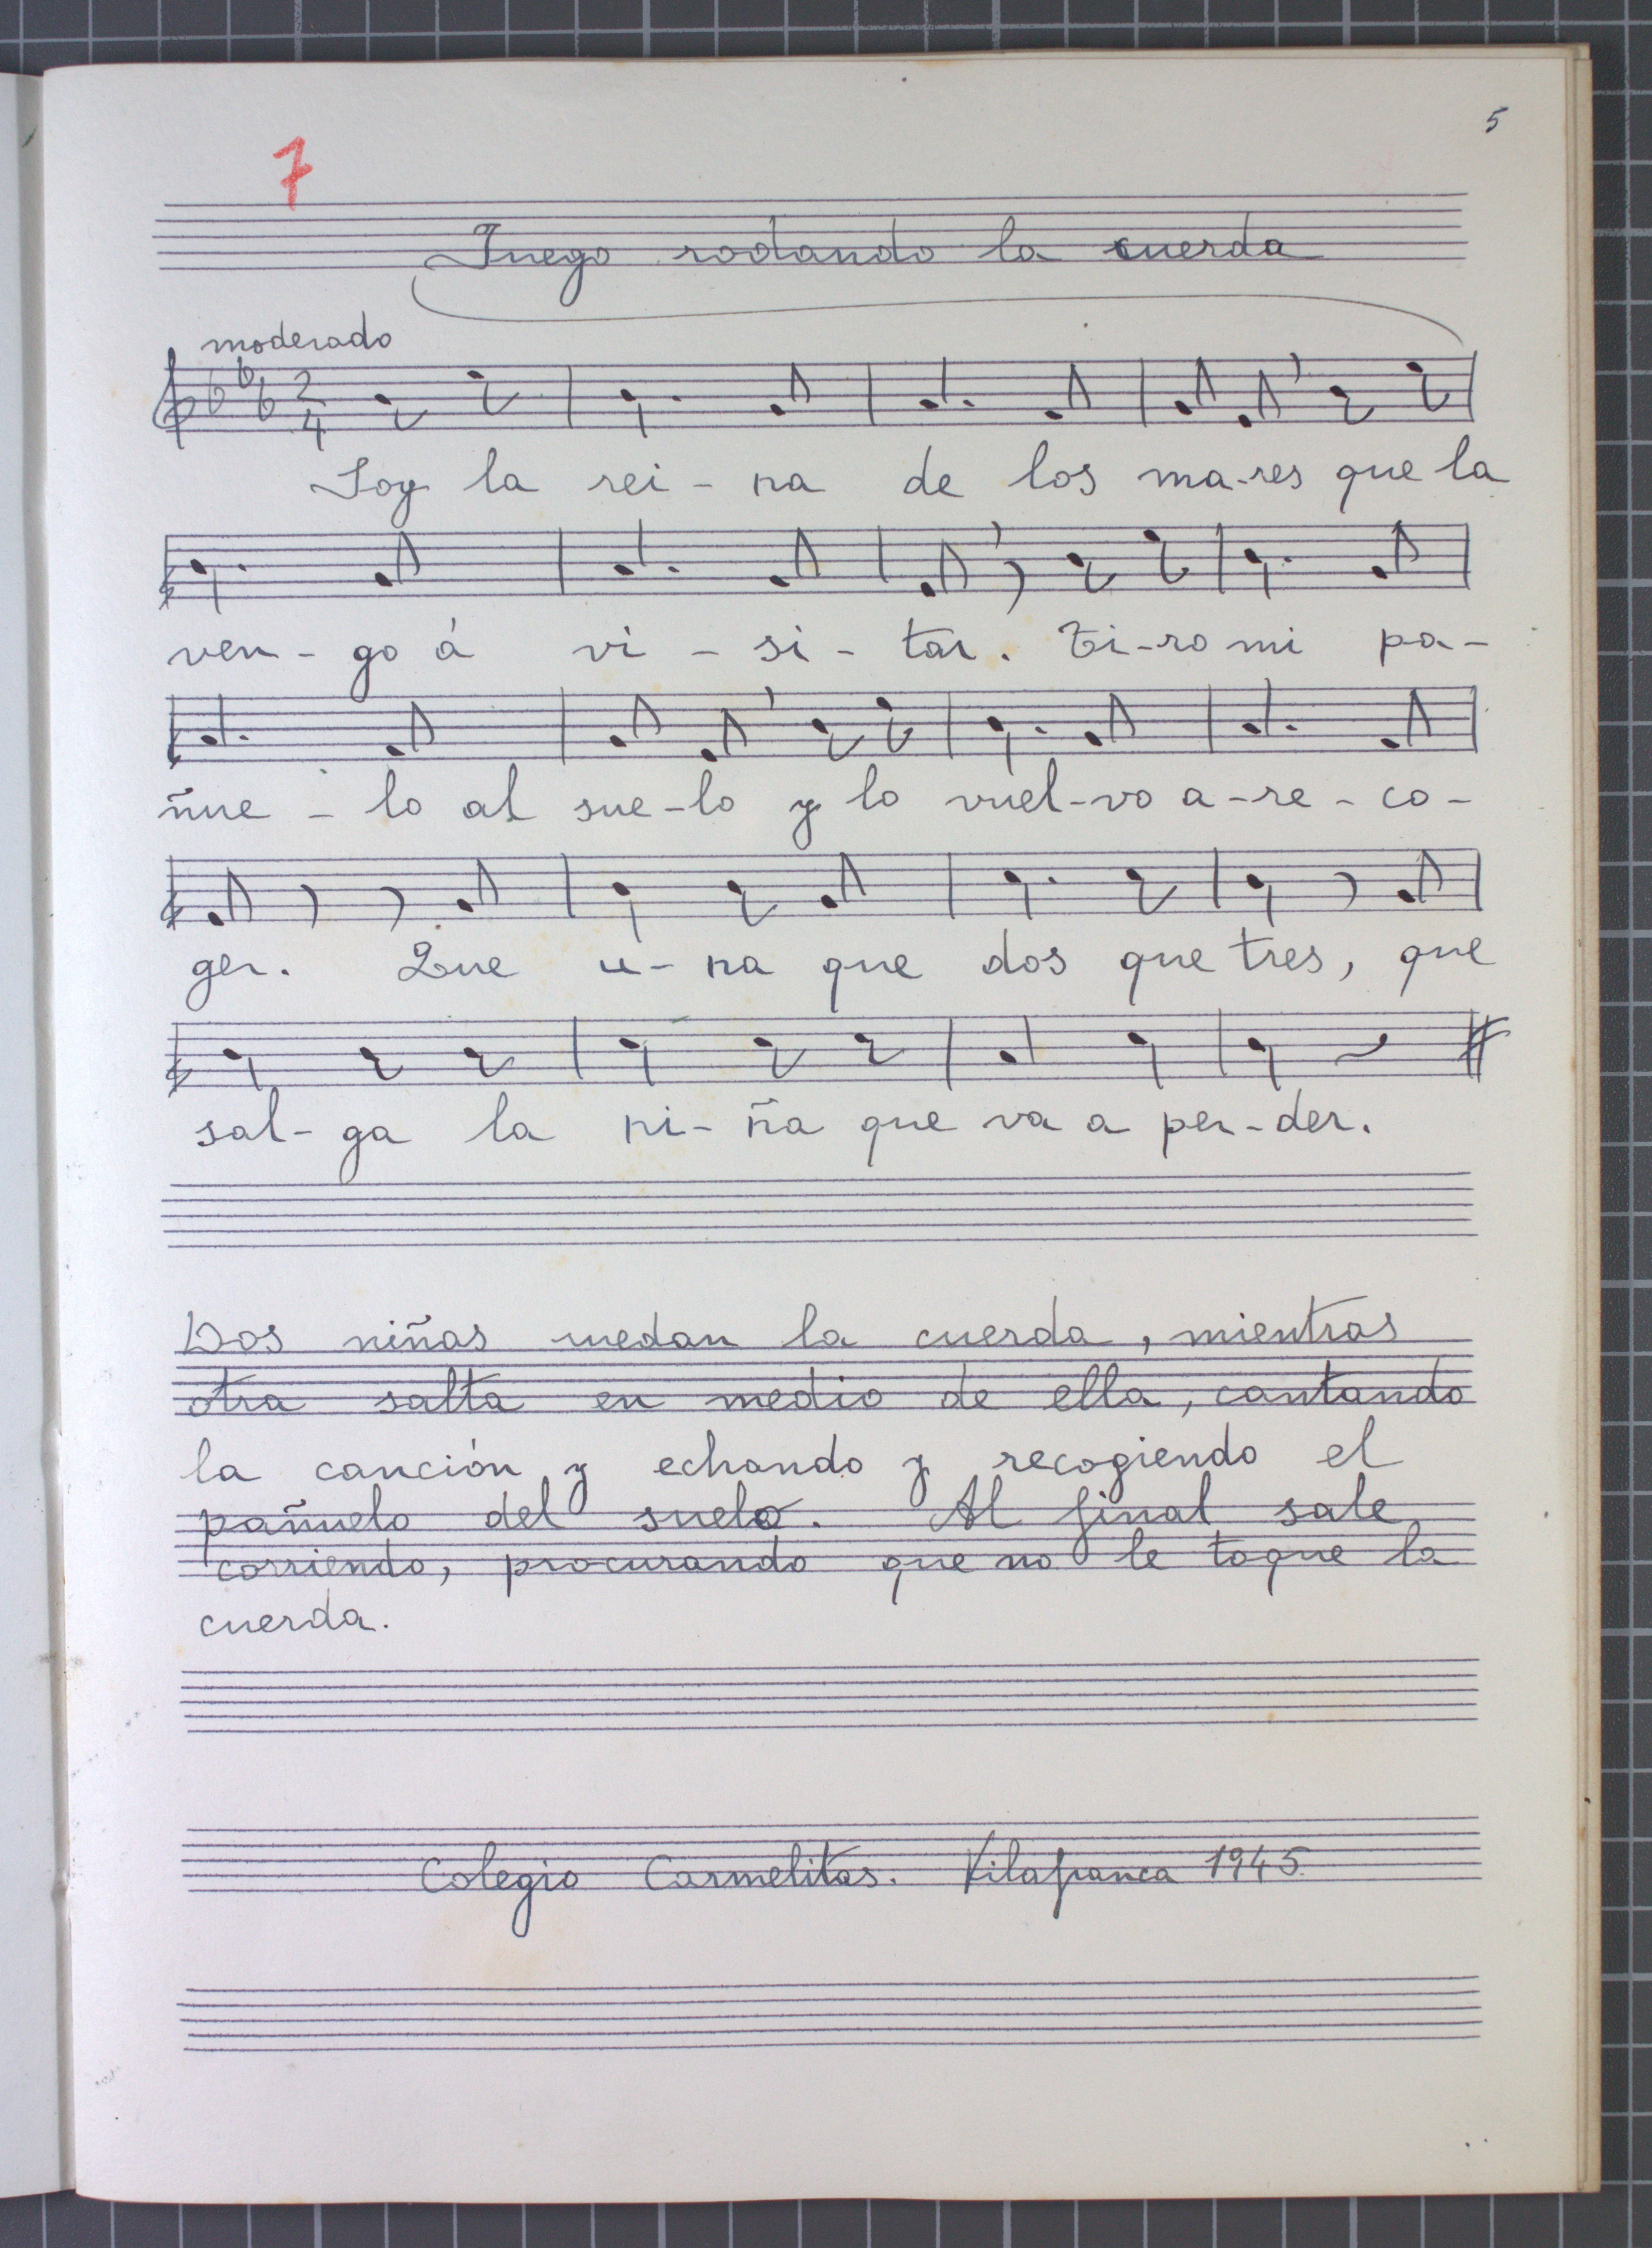 5
7
Juego rodando la cuerda
moderado
2
4
Soy la rei - na de los ma-res que la
ven - go á vi - si - tar. Ti-ro mi pa-
ñue - lo al sue-lo y lo vuel-vo a-re-co-
ger. Que u-na que dos que tres, que
sal-ga la ni-ña que va a per-der.
Dos niñas ruedan la cuerda, mientras
otra salta en medio de ella, cantando
la canción y echando y recogiendo el
pañuelo del suelo. Al final sale
corriendo, procurando que no le toque la
cuerda.
Colegio Carmelitas. Vilafranca 1945.